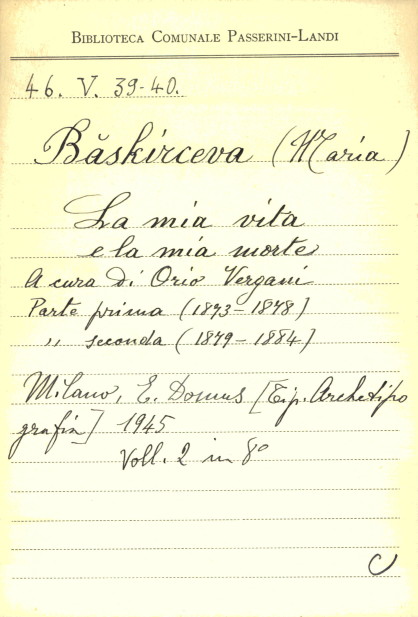 BIBLIOTECA COMUNALE PASSERINI-LANDI
46. V. 39-40.
Băskirceva (Maria)
La mia vita
e la mia morte
A cura di Orio Vergani
Parte prima (1873-1878)
" seconda (1879-1884)
Milano, E. Domus [Tip. Archetipo
grafia] 1945
Voll. 2 in 8°
C